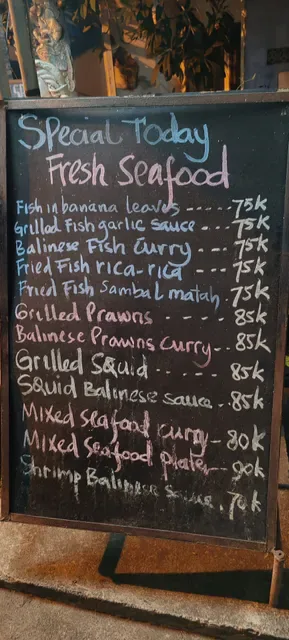 Special Today
Fresh Seafood
Fish in banana leaves ----- 75K
Grilled Fish garlic sauce -- 75K
Balinese Fish Curry --- 75K
Fried Fish rica-rica --- 75K
Fried Fish Sambal matah, 75K
Grilled Prawns - - - - 85K
Balinese Prawns curry-- 85K
Grilled Squid ..... 85K
Squid Balinese sauce.. 85K
Mixed seafood curry- 80K
Mixed Seafood plater-- 90K
Shrimp Balinese sauce. 70K